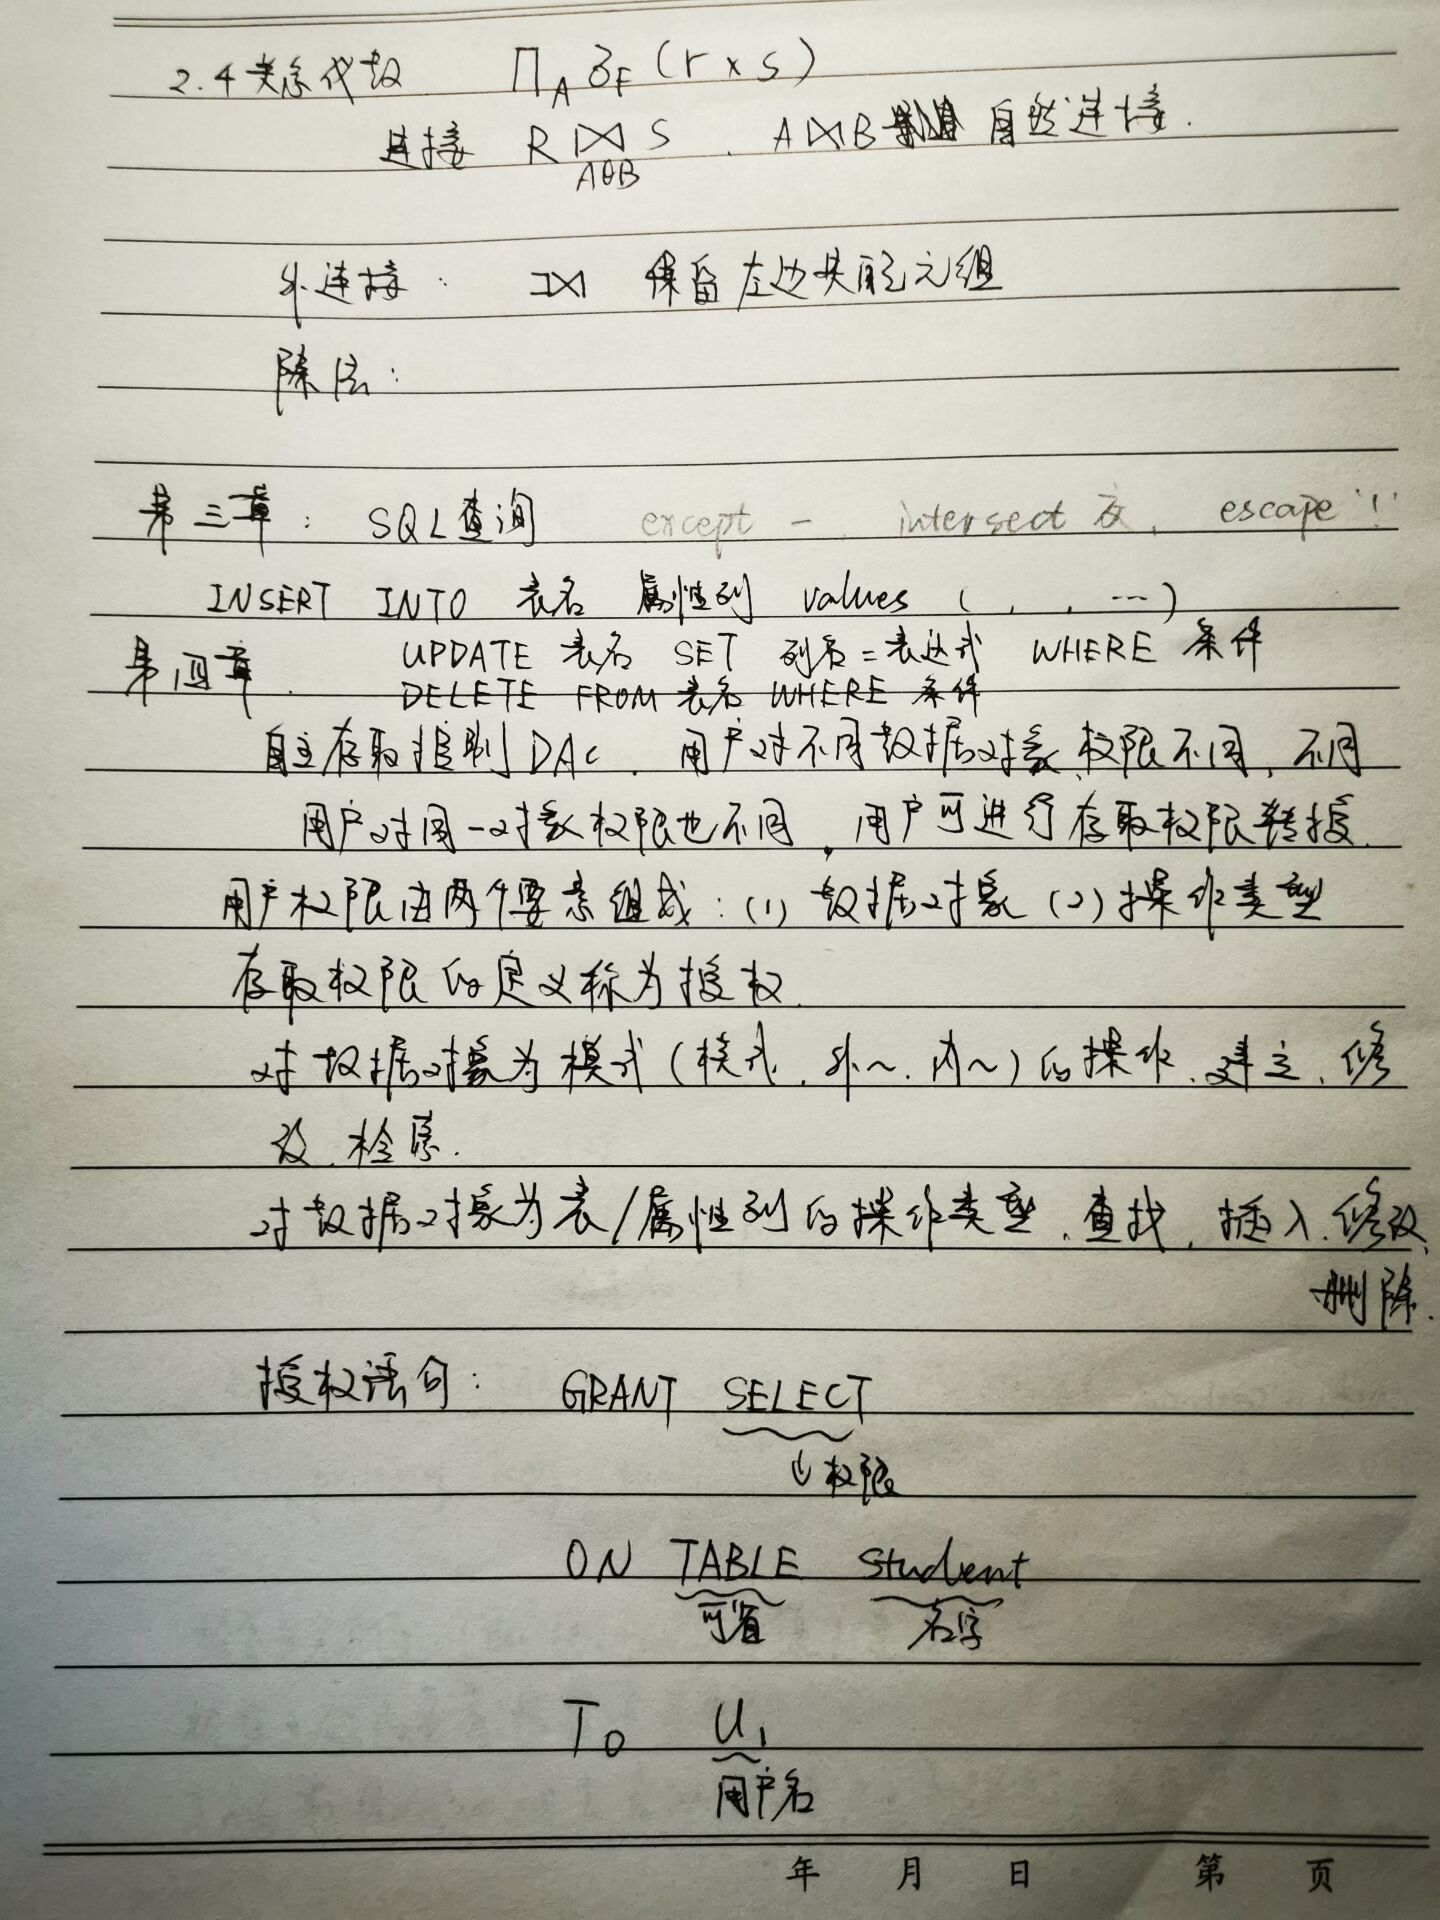 2.4 关系代数 ∏A σF (r × s)
连接 R ⋈ S . A⋈B 自然连接.
AθB
外连接: ⟕ 保留左边失配元组
除法:
第三章: SQL查询 except - , intersect 交, escape '!'
INSERT INTO 表名 属性列 values ( , , ...)
第四章. UPDATE 表名 SET 列名=表达式 WHERE 条件
DELETE FROM 表名 WHERE 条件
自主存取控制 DAC. 用户对不同数据对象权限不同, 不同
用户对同一对象权限也不同, 用户可进行存取权限转授.
用户权限由两个要素组成: (1) 数据对象 (2) 操作类型
存取权限的定义称为授权.
对数据对象为模式 (模式, 外~, 内~) 的操作, 建立, 修
改, 检索.
对数据对象为表/属性列的操作类型, 查找, 插入, 修改,
删除.
授权语句: GRANT SELECT
↓权限
ON TABLE Student
可省 名字
To U1
用户名
年 月 日 第 页